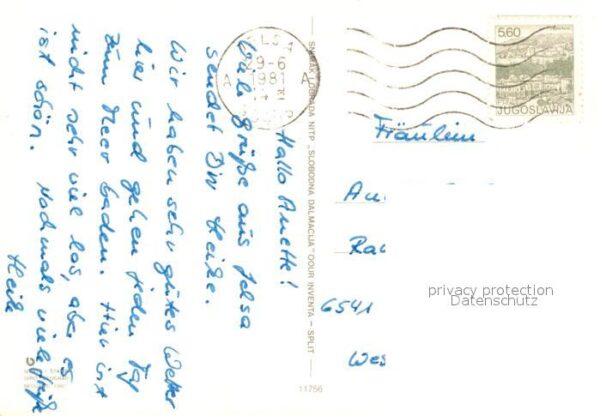 Hallo Anette!
Viele Grüße aus Jelsa
sendet Dir Heike.
Wir haben sehr gutes Wetter
hier und gehen jeden Tag
zum Meer baden. Hier ist
nicht sehr viel los, aber es
ist schön. Nochmals viele Grüße
Heike
SNIMAK
NITP „SLOBODNA DALMACIJA" OOUR INVENTA – SPLIT
11756
JELSA
29-6
1981
A A
5,60
JUGOSLAVIJA
Fräulein
6541
privacy protection
Datenschutz